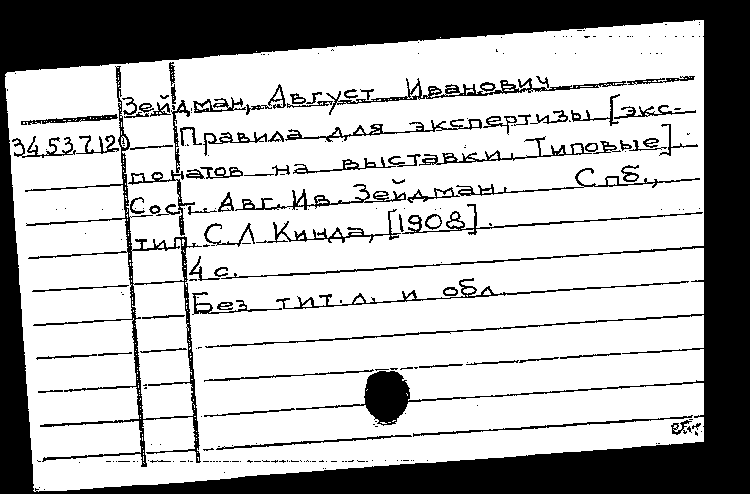 Зейдман, Август Иванович
34.53.7.120 Правила для экспертизы [экс-
понатов на выставки. Типовые].
Сост. Авг. Ив. Зейдман. Спб.,
тип. С.Л. Кинда, [1908].
4 с.
Без тит. л. и обл.